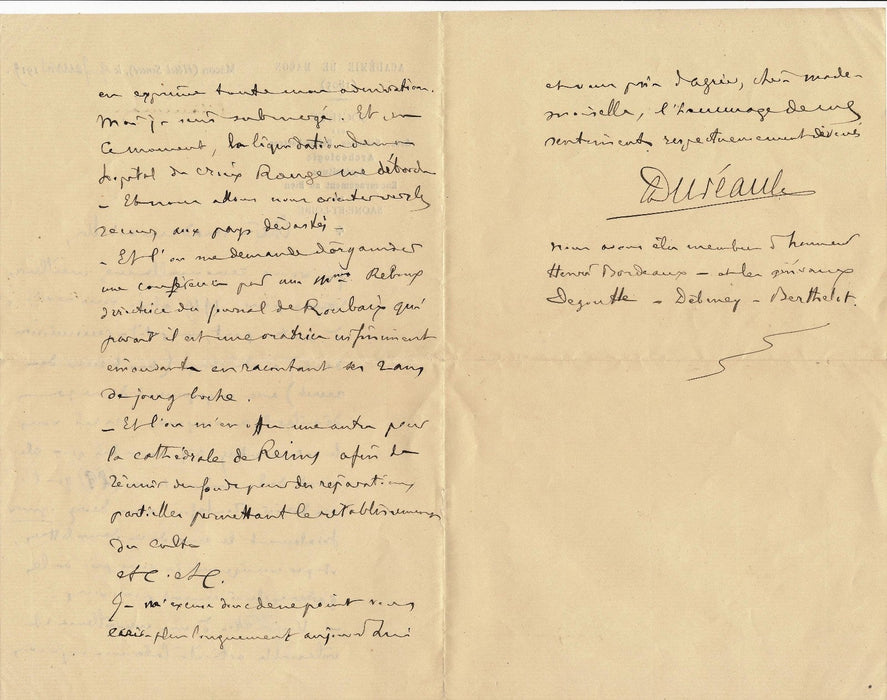 en exprime toute mon admiration.
Mais je suis submergé. Et en
ce moment, la liquidation de mon
hôpital de croix Rouge me déborde
— Et nous allons nous orienter vers les
secours aux pays dévastés —
— Et l'on me demande d'organiser
une conférence par une Mme Reboux
directrice du Journal de Roubaix qui
parait il est une oratrice infiniment
émouvante en racontant ses 2 ans
de joug boche.
— Et l'on m'en offre une autre pour
la cathédrale de Reims afin de
réunir des fonds pour des réparations
partielles permettant le rétablissement
du culte
etc. etc.
Je m'excuse donc de ne point vous
écrire plus longuement aujourd'hui
et vous prie d'agréer, chère made-
moiselle, l'hommage de mes
sentiments respectueusement dévoués
Duréault
nous avons élu membres d'honneur
Henri Bordeaux — et les généraux
Degoutte — Debeney — Berthelot.